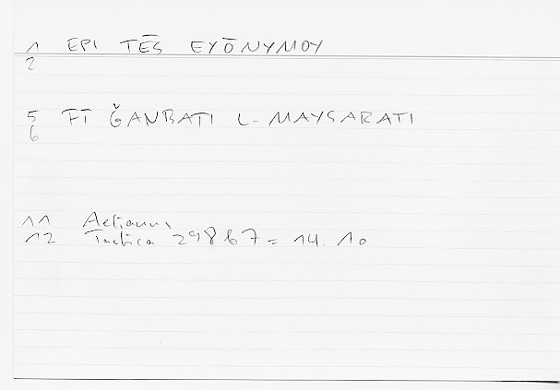 1 EPI TĒS EYŌNYMOY
2
5 FĪ ǦANBATI L-MAYSARATI
6
11 Aelianus
12 Tactica 298 67 = 14. 10